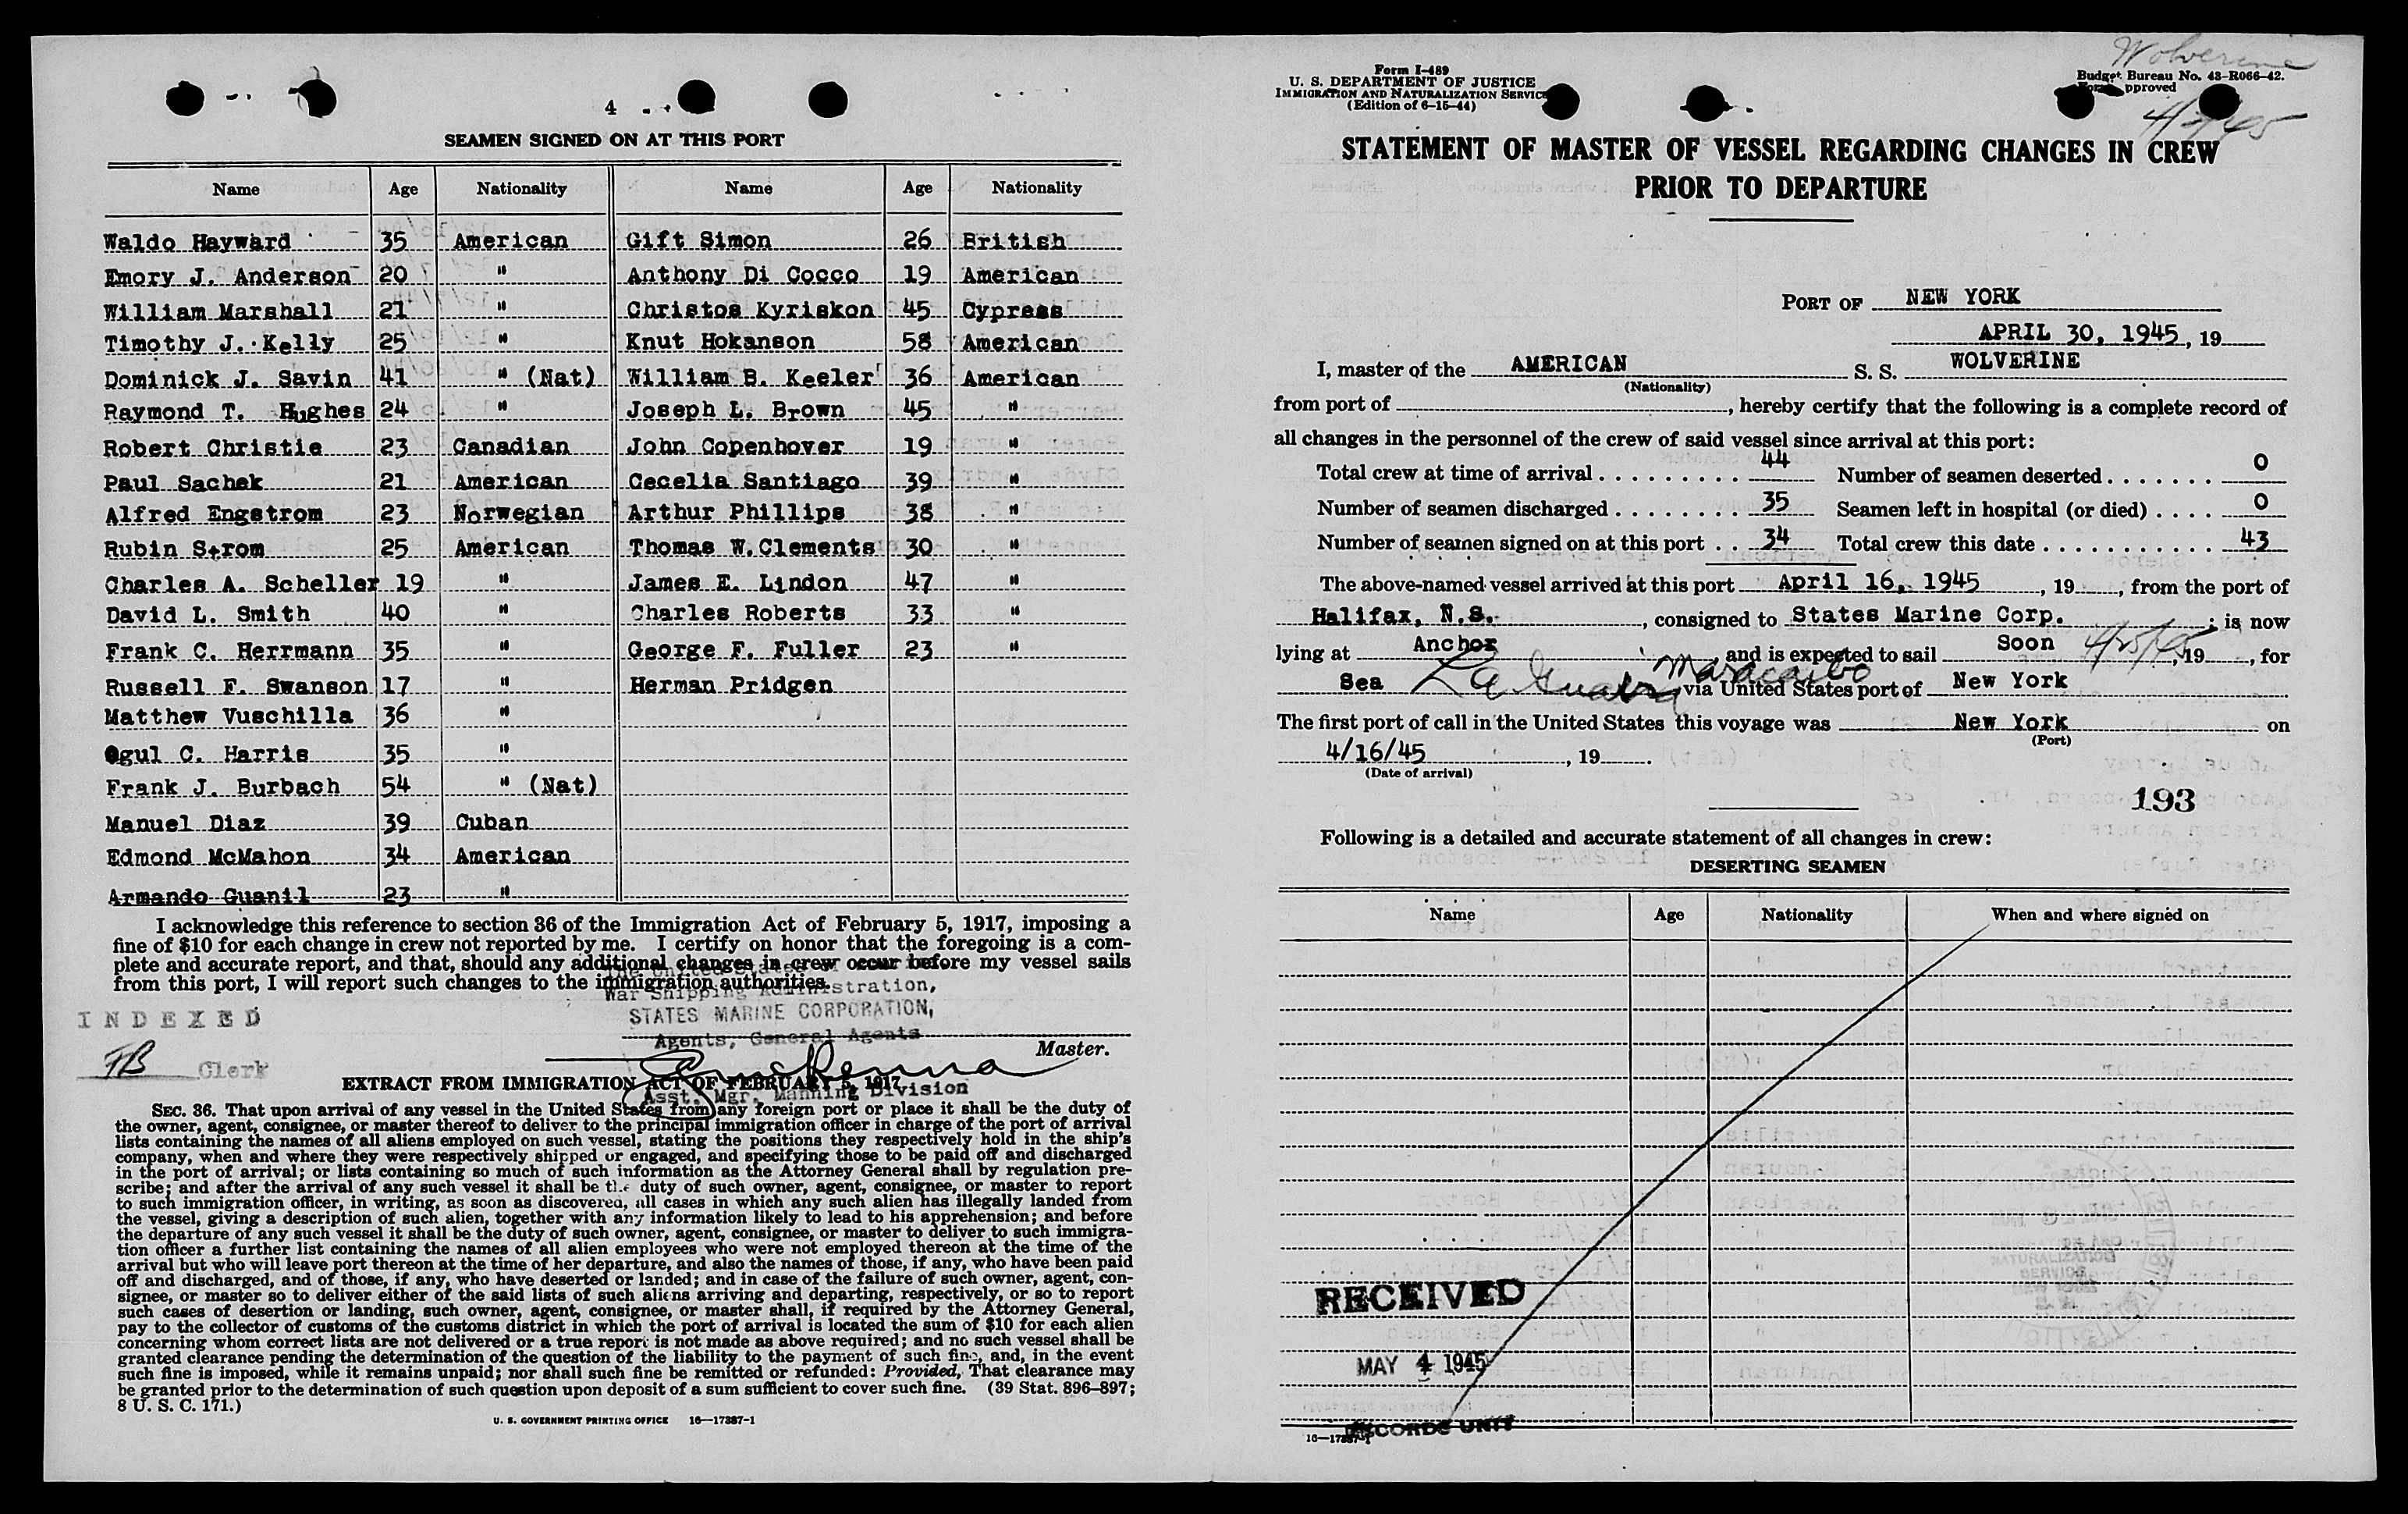 4
SEAMEN SIGNED ON AT THIS PORT
Name Age Nationality Name Age Nationality
Waldo Hayward 35 American Gift Simon 26 British
Emory J. Anderson 20 " Anthony Di Cocco 19 American
William Marshall 21 " Christos Kyriskon 45 Cypress
Timothy J. Kelly 25 " Knut Hokanson 58 American
Dominick J. Savin 41 " (Nat) William B. Keeler 36 American
Raymond T. Hughes 24 " Joseph L. Brown 45 "
Robert Christie 23 Canadian John Copenhover 19 "
Paul Sachek 21 American Cecelia Santiago 39 "
Alfred Engstrom 23 Norwegian Arthur Phillips 38 "
Rubin Strom 25 American Thomas W. Clements 30 "
Charles A. Scheller 19 " James E. Lindon 47 "
David L. Smith 40 " Charles Roberts 33 "
Frank C. Herrmann 35 " George F. Fuller 23 "
Russell F. Swanson 17 " Herman Pridgen
Matthew Vuschilla 36 "
Ogul C. Harris 35 "
Frank J. Burbach 54 " (Nat)
Manuel Diaz 39 Cuban
Edmond McMahon 34 American
Armando Guanil 23 "
I acknowledge this reference to section 36 of the Immigration Act of February 5, 1917, imposing a
fine of $10 for each change in crew not reported by me. I certify on honor that the foregoing is a com-
plete and accurate report, and that, should any additional changes in crew occur before my vessel sails
from this port, I will report such changes to the immigration authorities.
War Shipping Administration,
STATES MARINE CORPORATION,
Agents, General Agents
Master.
INDEXED
FB Clerk
EXTRACT FROM IMMIGRATION ACT OF FEBRUARY 5, 1917
Asst. Mgr. Manning Division
SEC. 36. That upon arrival of any vessel in the United States from any foreign port or place it shall be the duty of
the owner, agent, consignee, or master thereof to deliver to the principal immigration officer in charge of the port of arrival
lists containing the names of all aliens employed on such vessel, stating the positions they respectively hold in the ship's
company, when and where they were respectively shipped or engaged, and specifying those to be paid off and discharged
in the port of arrival; or lists containing so much of such information as the Attorney General shall by regulation pre-
scribe; and after the arrival of any such vessel it shall be the duty of such owner, agent, consignee, or master to report
to such immigration officer, in writing, as soon as discovered, all cases in which any such alien has illegally landed from
the vessel, giving a description of such alien, together with any information likely to lead to his apprehension; and before
the departure of any such vessel it shall be the duty of such owner, agent, consignee, or master to deliver to such immigra-
tion officer a further list containing the names of all alien employees who were not employed thereon at the time of the
arrival but who will leave port thereon at the time of her departure, and also the names of those, if any, who have been paid
off and discharged, and of those, if any, who have deserted or landed; and in case of the failure of such owner, agent, con-
signee, or master so to deliver either of the said lists of such aliens arriving and departing, respectively, or so to report
such cases of desertion or landing, such owner, agent, consignee, or master shall, if required by the Attorney General,
pay to the collector of customs of the customs district in which the port of arrival is located the sum of $10 for each alien
concerning whom correct lists are not delivered or a true report is not made as above required; and no such vessel shall be
granted clearance pending the determination of the question of the liability to the payment of such fine, and, in the event
such fine is imposed, while it remains unpaid; nor shall such fine be remitted or refunded: Provided, That clearance may
be granted prior to the determination of such question upon deposit of a sum sufficient to cover such fine. (39 Stat. 896-897;
8 U. S. C. 171.)
U. S. GOVERNMENT PRINTING OFFICE 16—17387-1
Wolverine
Form I-489
U. S. DEPARTMENT OF JUSTICE
IMMIGRATION AND NATURALIZATION SERVICE
(Edition of 6-15-44)
Budget Bureau No. 43-R066-42.
STATEMENT OF MASTER OF VESSEL REGARDING CHANGES IN CREW
PRIOR TO DEPARTURE
PORT OF NEW YORK
APRIL 30, 1945, 19
I, master of the AMERICAN S. S. WOLVERINE
(Nationality)
from port of , hereby certify that the following is a complete record of
all changes in the personnel of the crew of said vessel since arrival at this port:
Total crew at time of arrival 44 Number of seamen deserted 0
Number of seamen discharged 35 Seamen left in hospital (or died) 0
Number of seamen signed on at this port 34 Total crew this date 43
The above-named vessel arrived at this port April 16, 1945, 19 , from the port of
Halifax, N.S. , consigned to States Marine Corp. ; is now
lying at Anchor , and is expected to sail Soon 4/25/45, 19 , for
Sea La Guaira Maracaibo via United States port of New York
The first port of call in the United States this voyage was New York on
(Port)
4/16/45 , 19 .
(Date of arrival)
193
Following is a detailed and accurate statement of all changes in crew:
DESERTING SEAMEN
Name Age Nationality When and where signed on
RECEIVED
MAY 4 1945
RECORDS UNIT
16—17387-1